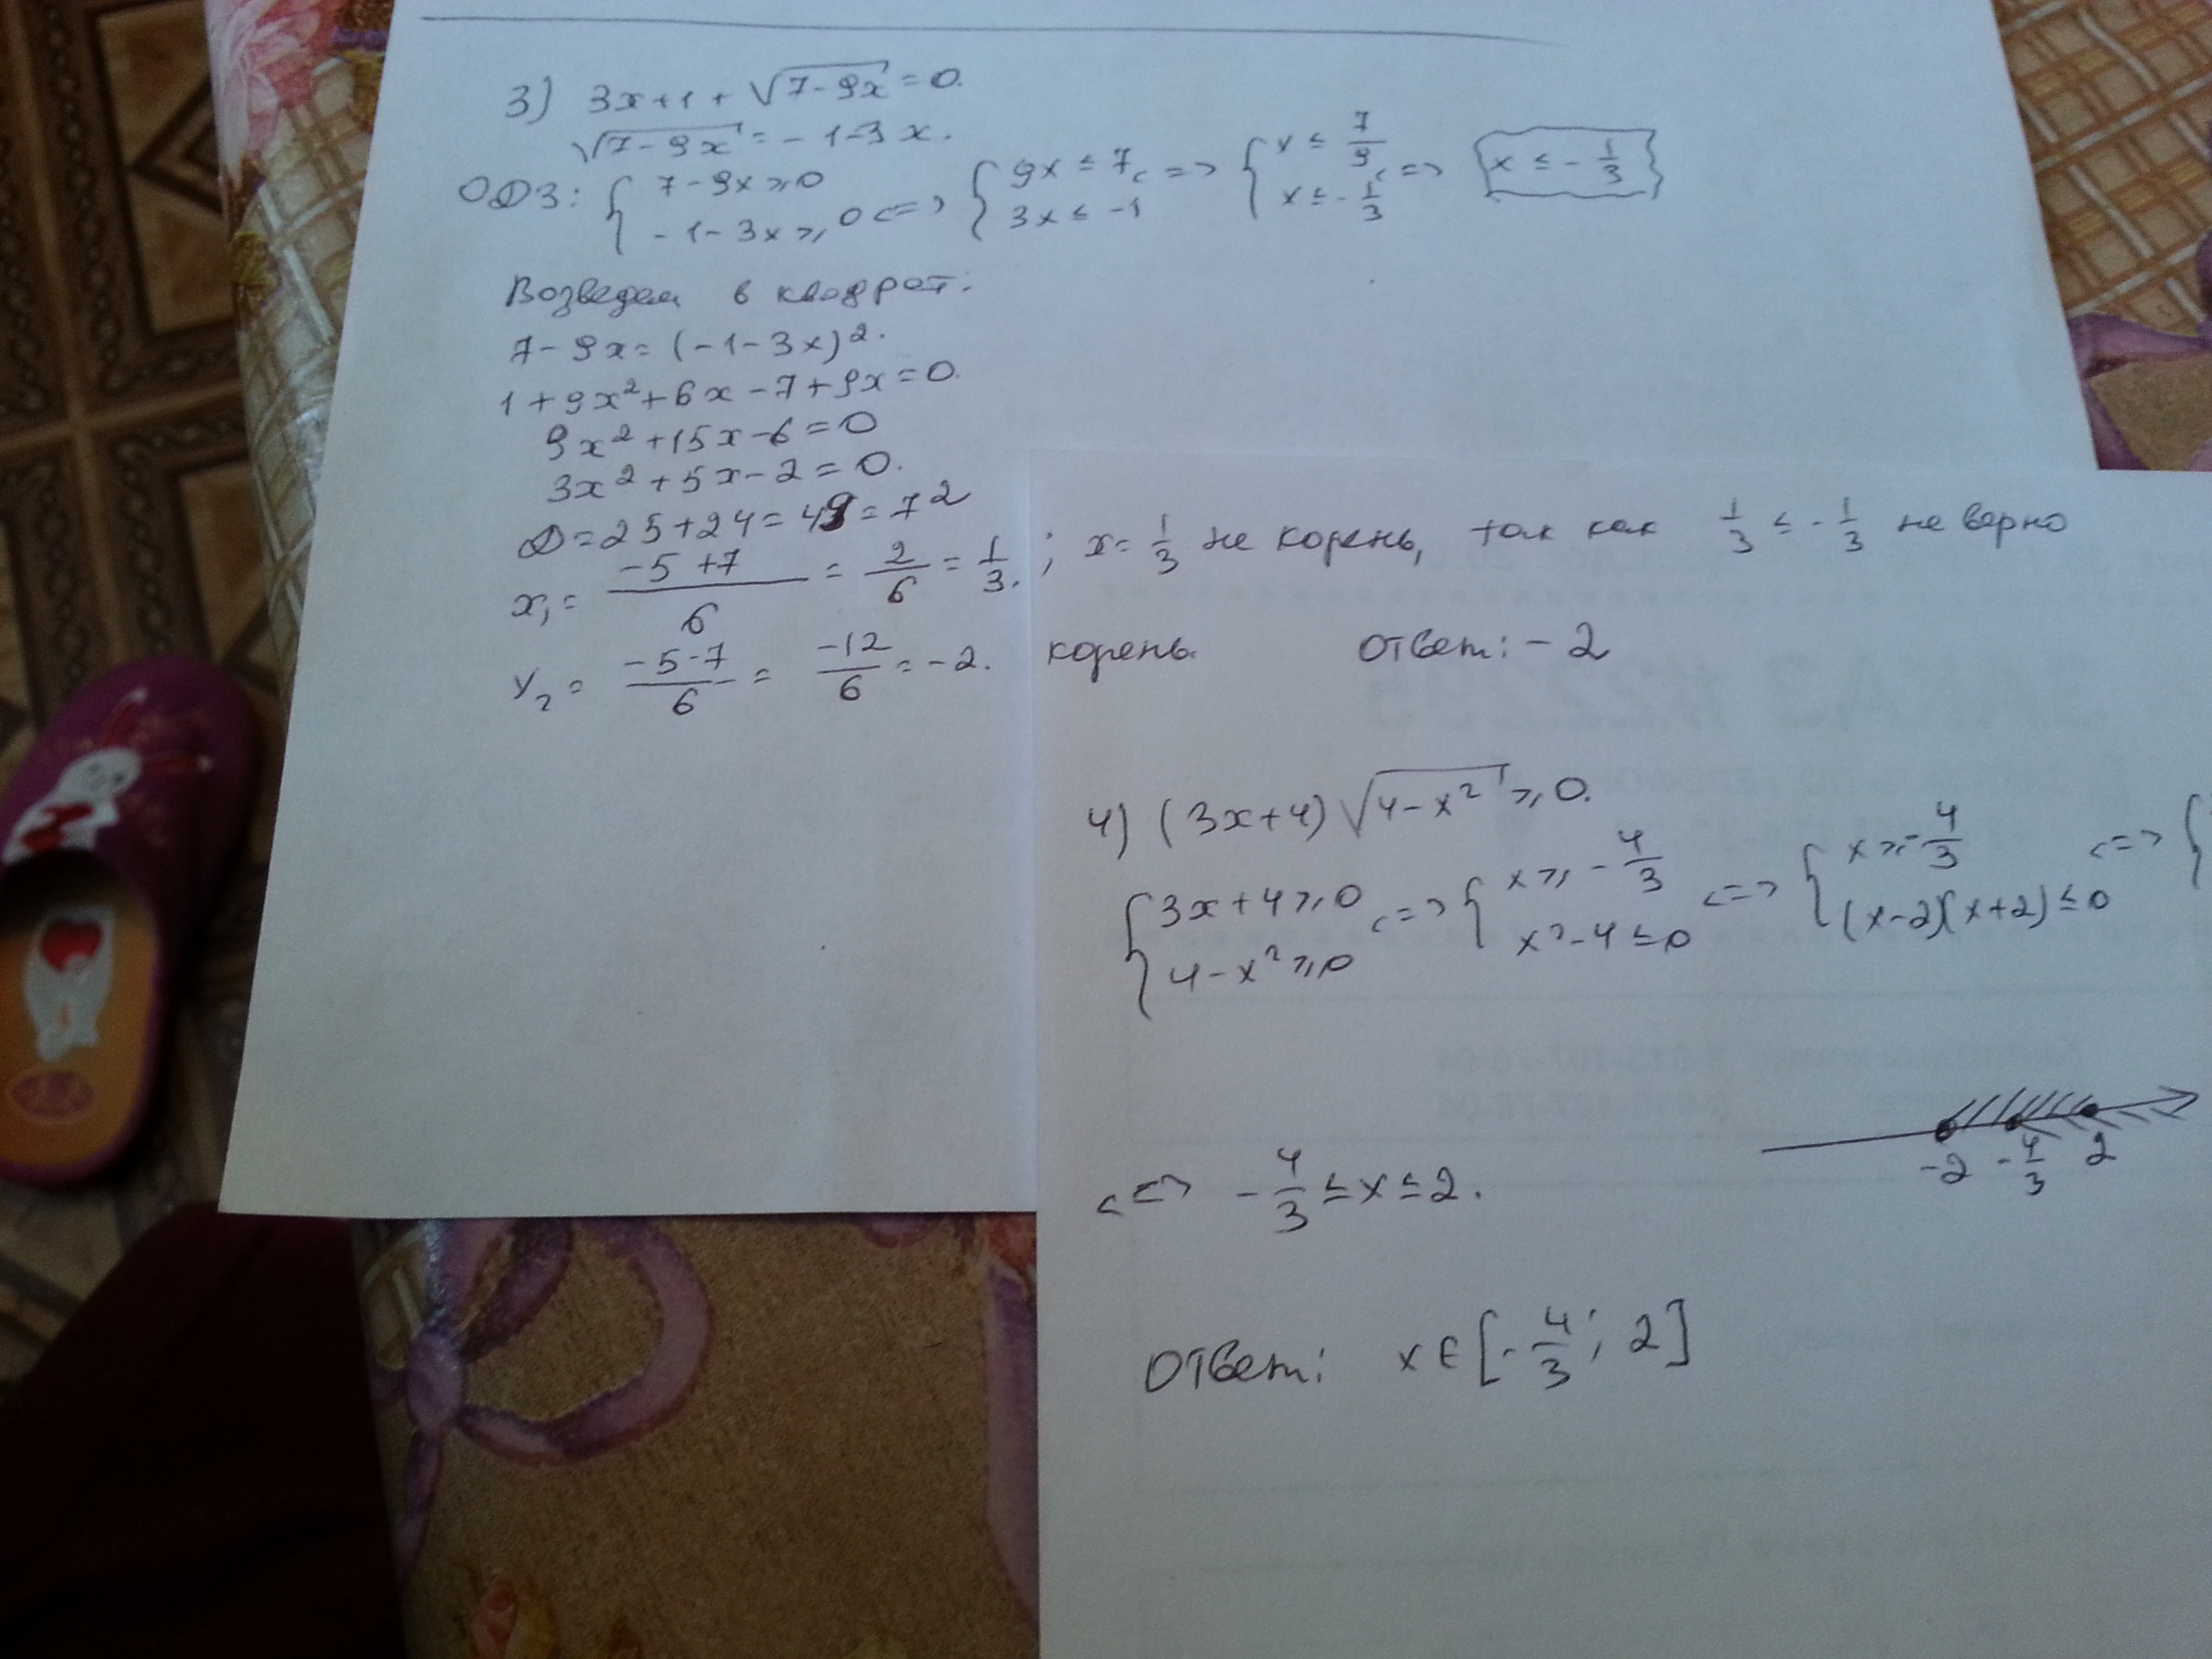 3) 3x+1+√(7-9x)=0.
√(7-9x)=-1-3x.
ОДЗ: { 7-9x⩾0 -1-3x⩾0 <=> { 9x≤7 3x≤-1 <=> { x≤7/9 x≤-1/3 <=> x≤-1/3
Возведем в квадрат:
7-9x=(-1-3x)².
1+9x²+6x-7+9x=0.
9x²+15x-6=0
3x²+5x-2=0.
D=25+24=49=7²
x₁=(-5+7)/6=2/6=1/3. ; x=1/3 не корень, так как 1/3≤-1/3 не верно
x₂=(-5-7)/6=-12/6=-2. корень. Ответ: -2
4) (3x+4)√(4-x²)⩾0.
{ 3x+4⩾0 4-x²⩾0 <=> { x⩾-4/3 x²-4≤0 <=> { x⩾-4/3 (x-2)(x+2)≤0 <=> {
-2 -4/3 2
<=> -4/3≤x≤2.
Ответ: x∈[-4/3; 2]